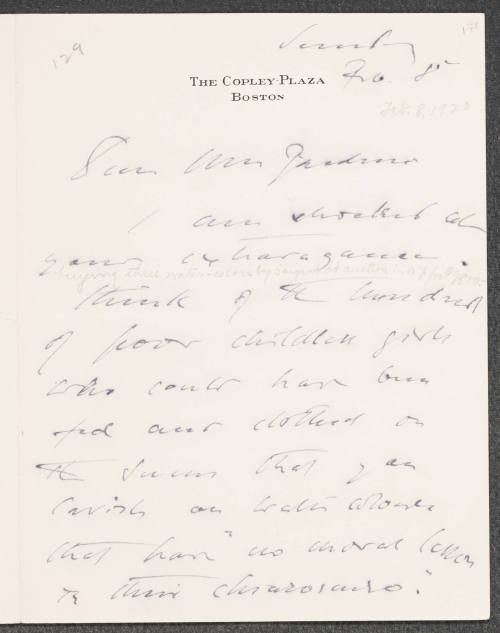 129
Sunday
THE COPLEY-PLAZA
BOSTON
Feb. 8th
Feb. 8, 1920
Dear Mrs Gardner
I am shocked at
your extravagance.
buying three water-colors by Sargent at auction in N.Y. for
Think of the hundreds
of poor children girls
who could have been
fed and clothed on
the sums that you
lavish on water colours
that have "no moral lesson
in their chiaroscuro."